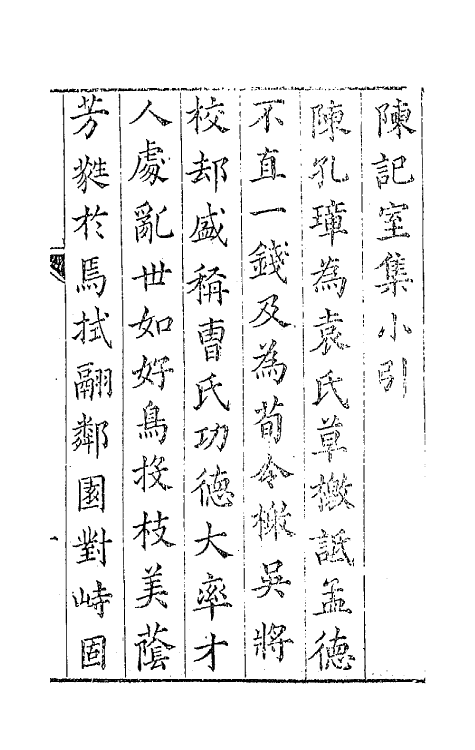 陳記室集小引
陳孔璋為袁氏草檄詆孟德
不直一錢及為荀令檄吳將
校却盛稱曹氏功德大率才
人處亂世如好鳥投枝美蔭
芳蕤於焉拭翮鄰園對峙固